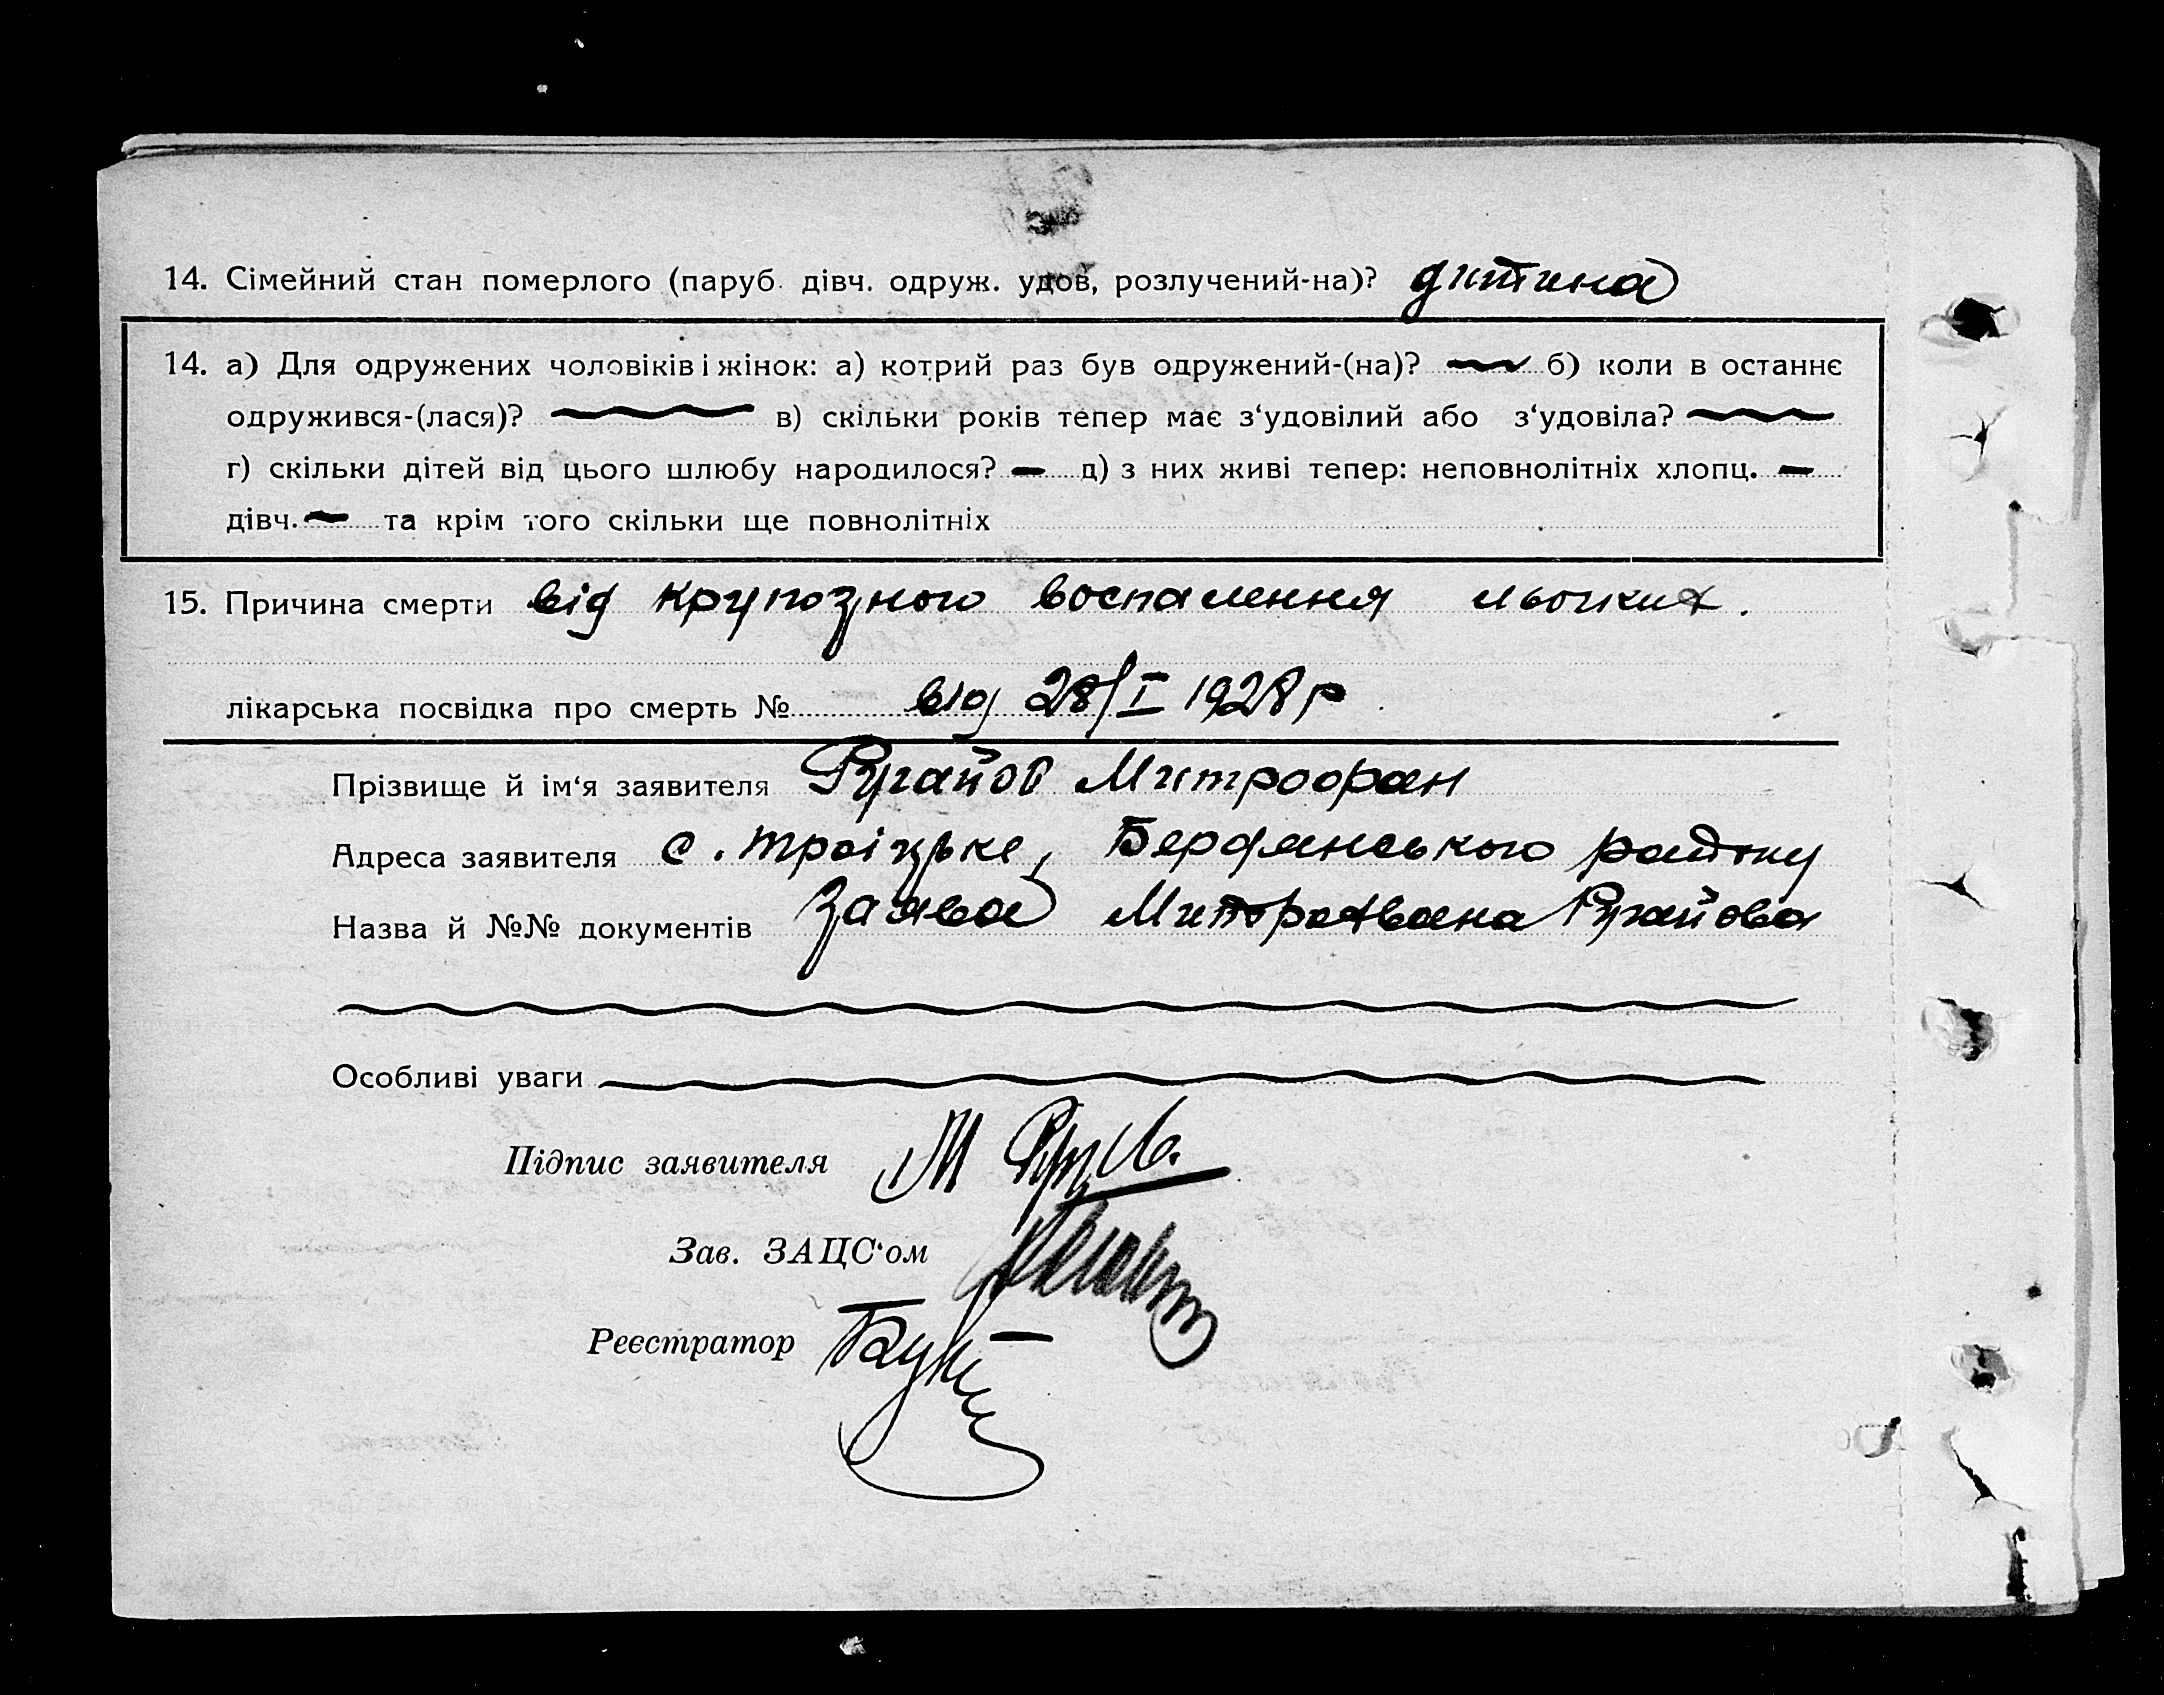 14. Сімейний стан померлого (паруб. дівч. одруж. удов, розлучений-на)? дитина
14. а) Для одружених чоловіків і жінок: а) котрий раз був одружений-(на)? б) коли в останнє
одружився-(лася)? в) скільки років тепер має з‘удовілий або з‘удовіла?
г) скільки дітей від цього шлюбу народилося? — д) з них живі тепер: неповнолітніх хлопц. —
дівч. — та крім того скільки ще повнолітніх
15. Причина смерти від крупозного воспалення льогких.
лікарська посвідка про смерть № від 28/I 1928 р
Прізвище й ім‘я заявителя Ругайов Митрофан
Адреса заявителя с. Троіцьке, Бердянського району
Назва й №№ документів Заява Ругайова
Особливі уваги
Підпис заявителя М
Зав. ЗАЦС‘ом
Реєстратор